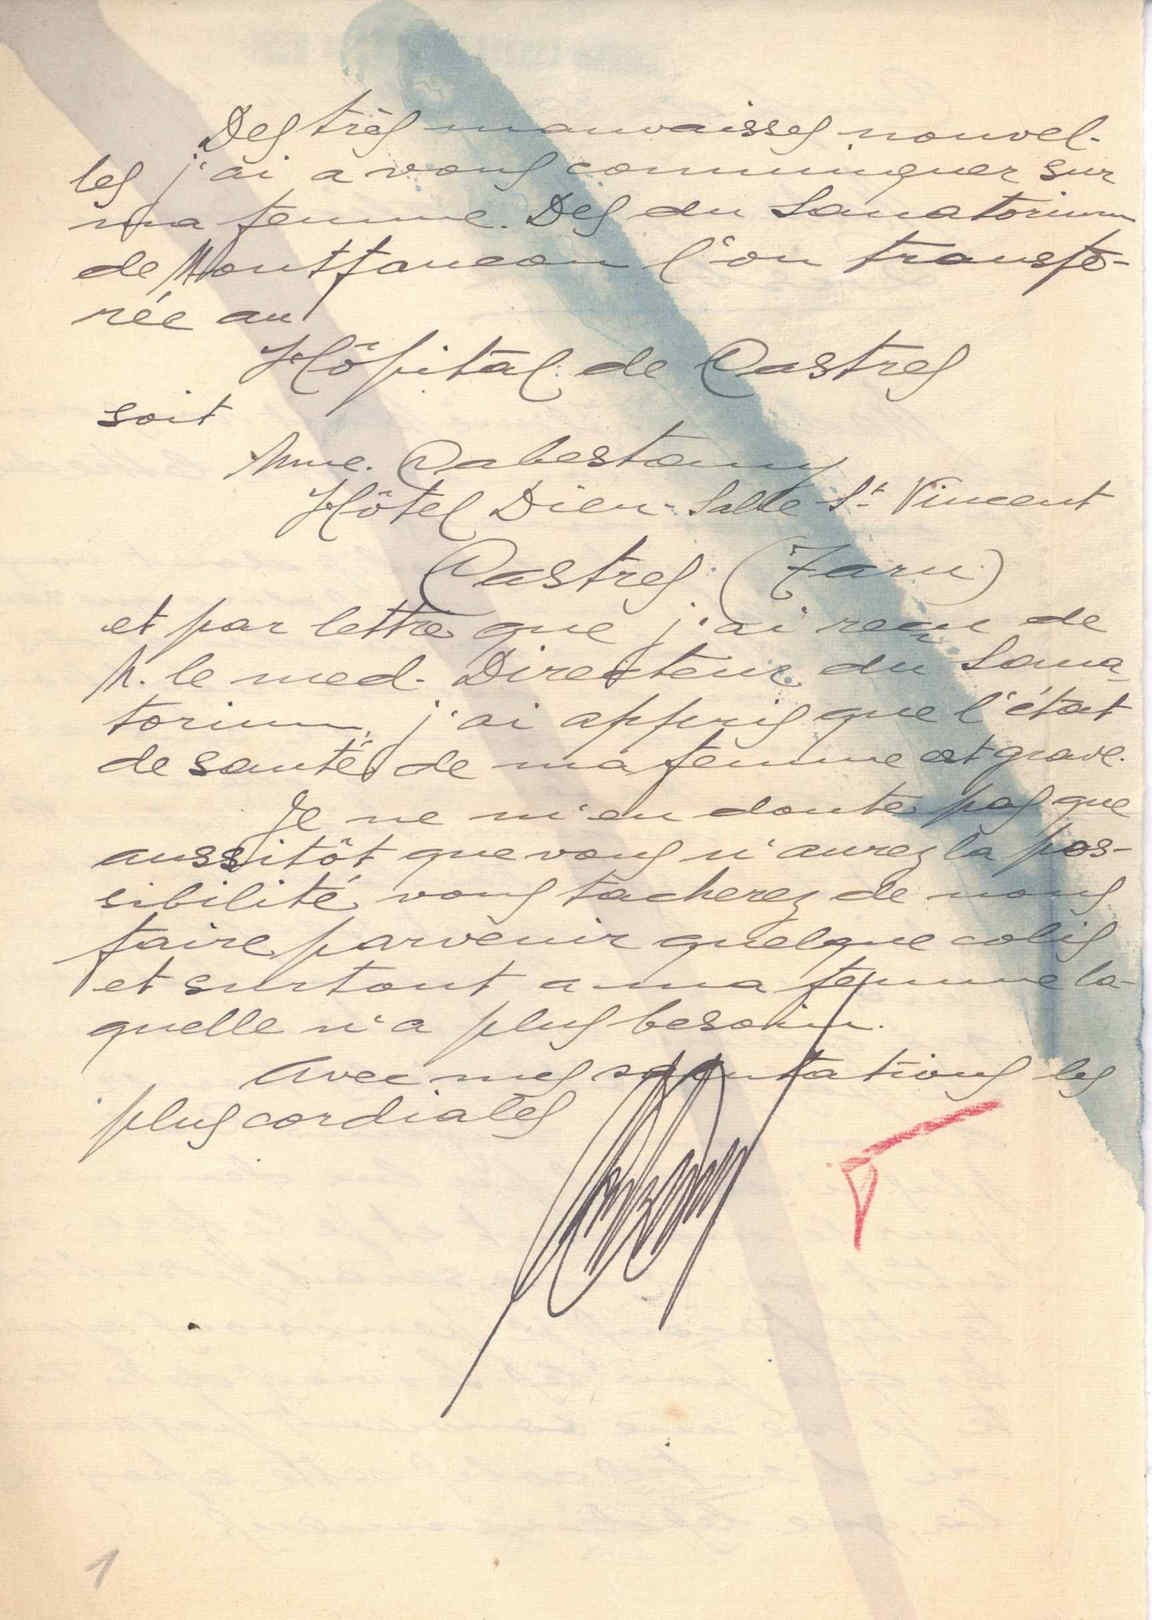 Des très mauvaisses nouvel-
les j'ai a vous comuniquer sur
ma femme. Des du Sanatorium
de Montfaucon l'on transfe-
rée au
Hôpital de Castres
soit
Mme. Cabestany
Hôtel Dieu - Salle St. Vincent
Castres (Tarn)
et par lettre que j'ai reçu de
M. le med. Directeur du Sana-
torium, j'ai appris que l'état
de santé de ma femme est grave.
Je ne m'en doute pas que
aussitôt que vous n'aurez la pos-
sibilité vous tacherez de nous
faire parvenir quelque colis
et surtout a ma femme la-
quelle n'a plus besoin.
Avec mes salutations les
plus cordiales
1